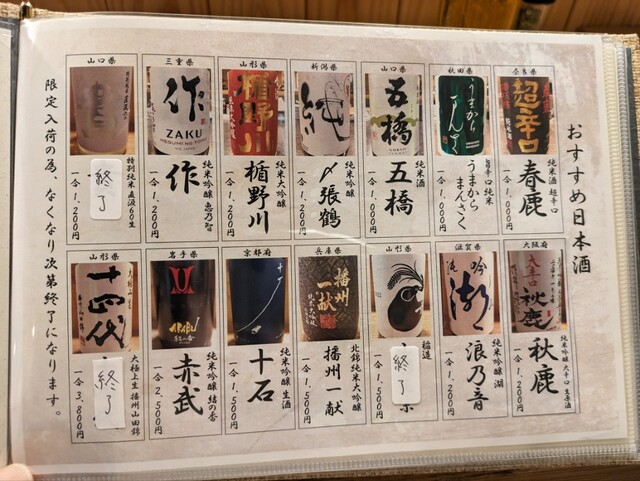 おすすめ日本酒
奈良県
超辛口
純米酒 超辛口
春鹿
一合 1,000円
秋田県
うまから
まんさく
旨辛口純米
うまから
まんさく
一合 1,000円
山口県
五橋
純米酒
五橋
一合 1,000円
新潟県
純
純米吟醸
〆張鶴
一合 1,200円
山形県
楯野川
純米大吟醸
楯野川
一合 1,200円
三重県
作
ZAKU
MEGUMI NO TOMO
純米吟醸 恵乃智
作
一合 1,200円
山口県
特別純米 直汲60生
終了
一合 1,200円
大阪府
大辛口
秋鹿
純米吟醸 大辛口 生原酒
秋鹿
一合 1,200円
滋賀県
吟
純米吟醸 湖
浪乃音
一合 1,200円
山形県
稲造
終了
一合 1,200円
兵庫県
播州
一献
北錦純米大吟醸
播州一献
一合 1,500円
京都府
純米吟醸 生酒
十石
一合 1,500円
岩手県
AKABU
結の香
純米吟醸 結の香
赤武
一合 2,500円
山形県
十四代
大極上生
大極上生 播州山田錦
終了
一合 3,800円
限定入荷の為、なくなり次第終了になります。